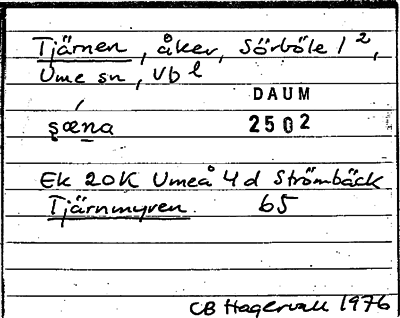 Tjärnen, åker, Sörböle 1²,
Ume sn, Vb l
DAUM
ş́œṉa 2502
Ek 20K Umeå 4d Strömbäck
Tjärnmyren 65
CB Hagervall 1976